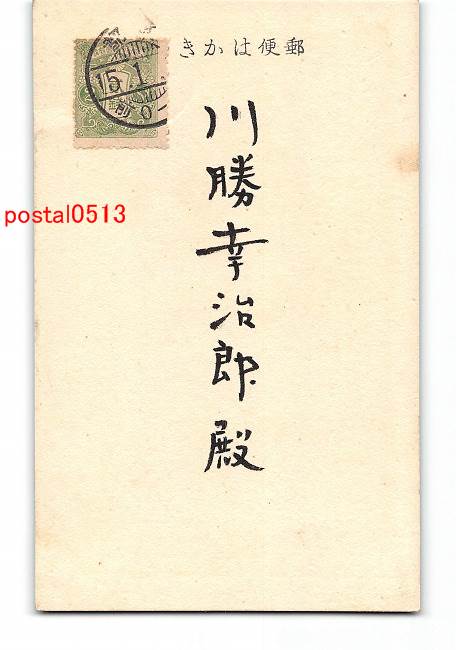 郵便はかき
15.1
川勝幸治郎殿
postal0513